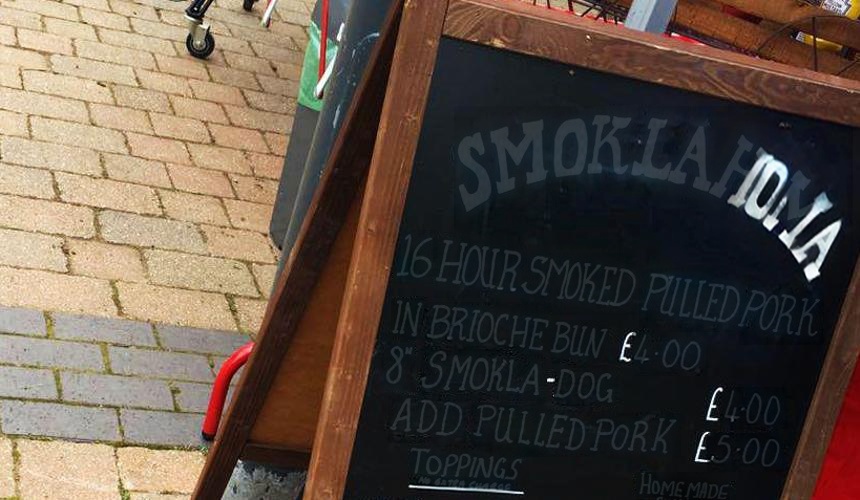 SMOKLAHOMA
16 HOUR SMOKED PULLED PORK
IN BRIOCHE BUN £4.00
8" SMOKLA-DOG £4.00
ADD PULLED PORK £5.00
TOPPINGS
HOMEMADE